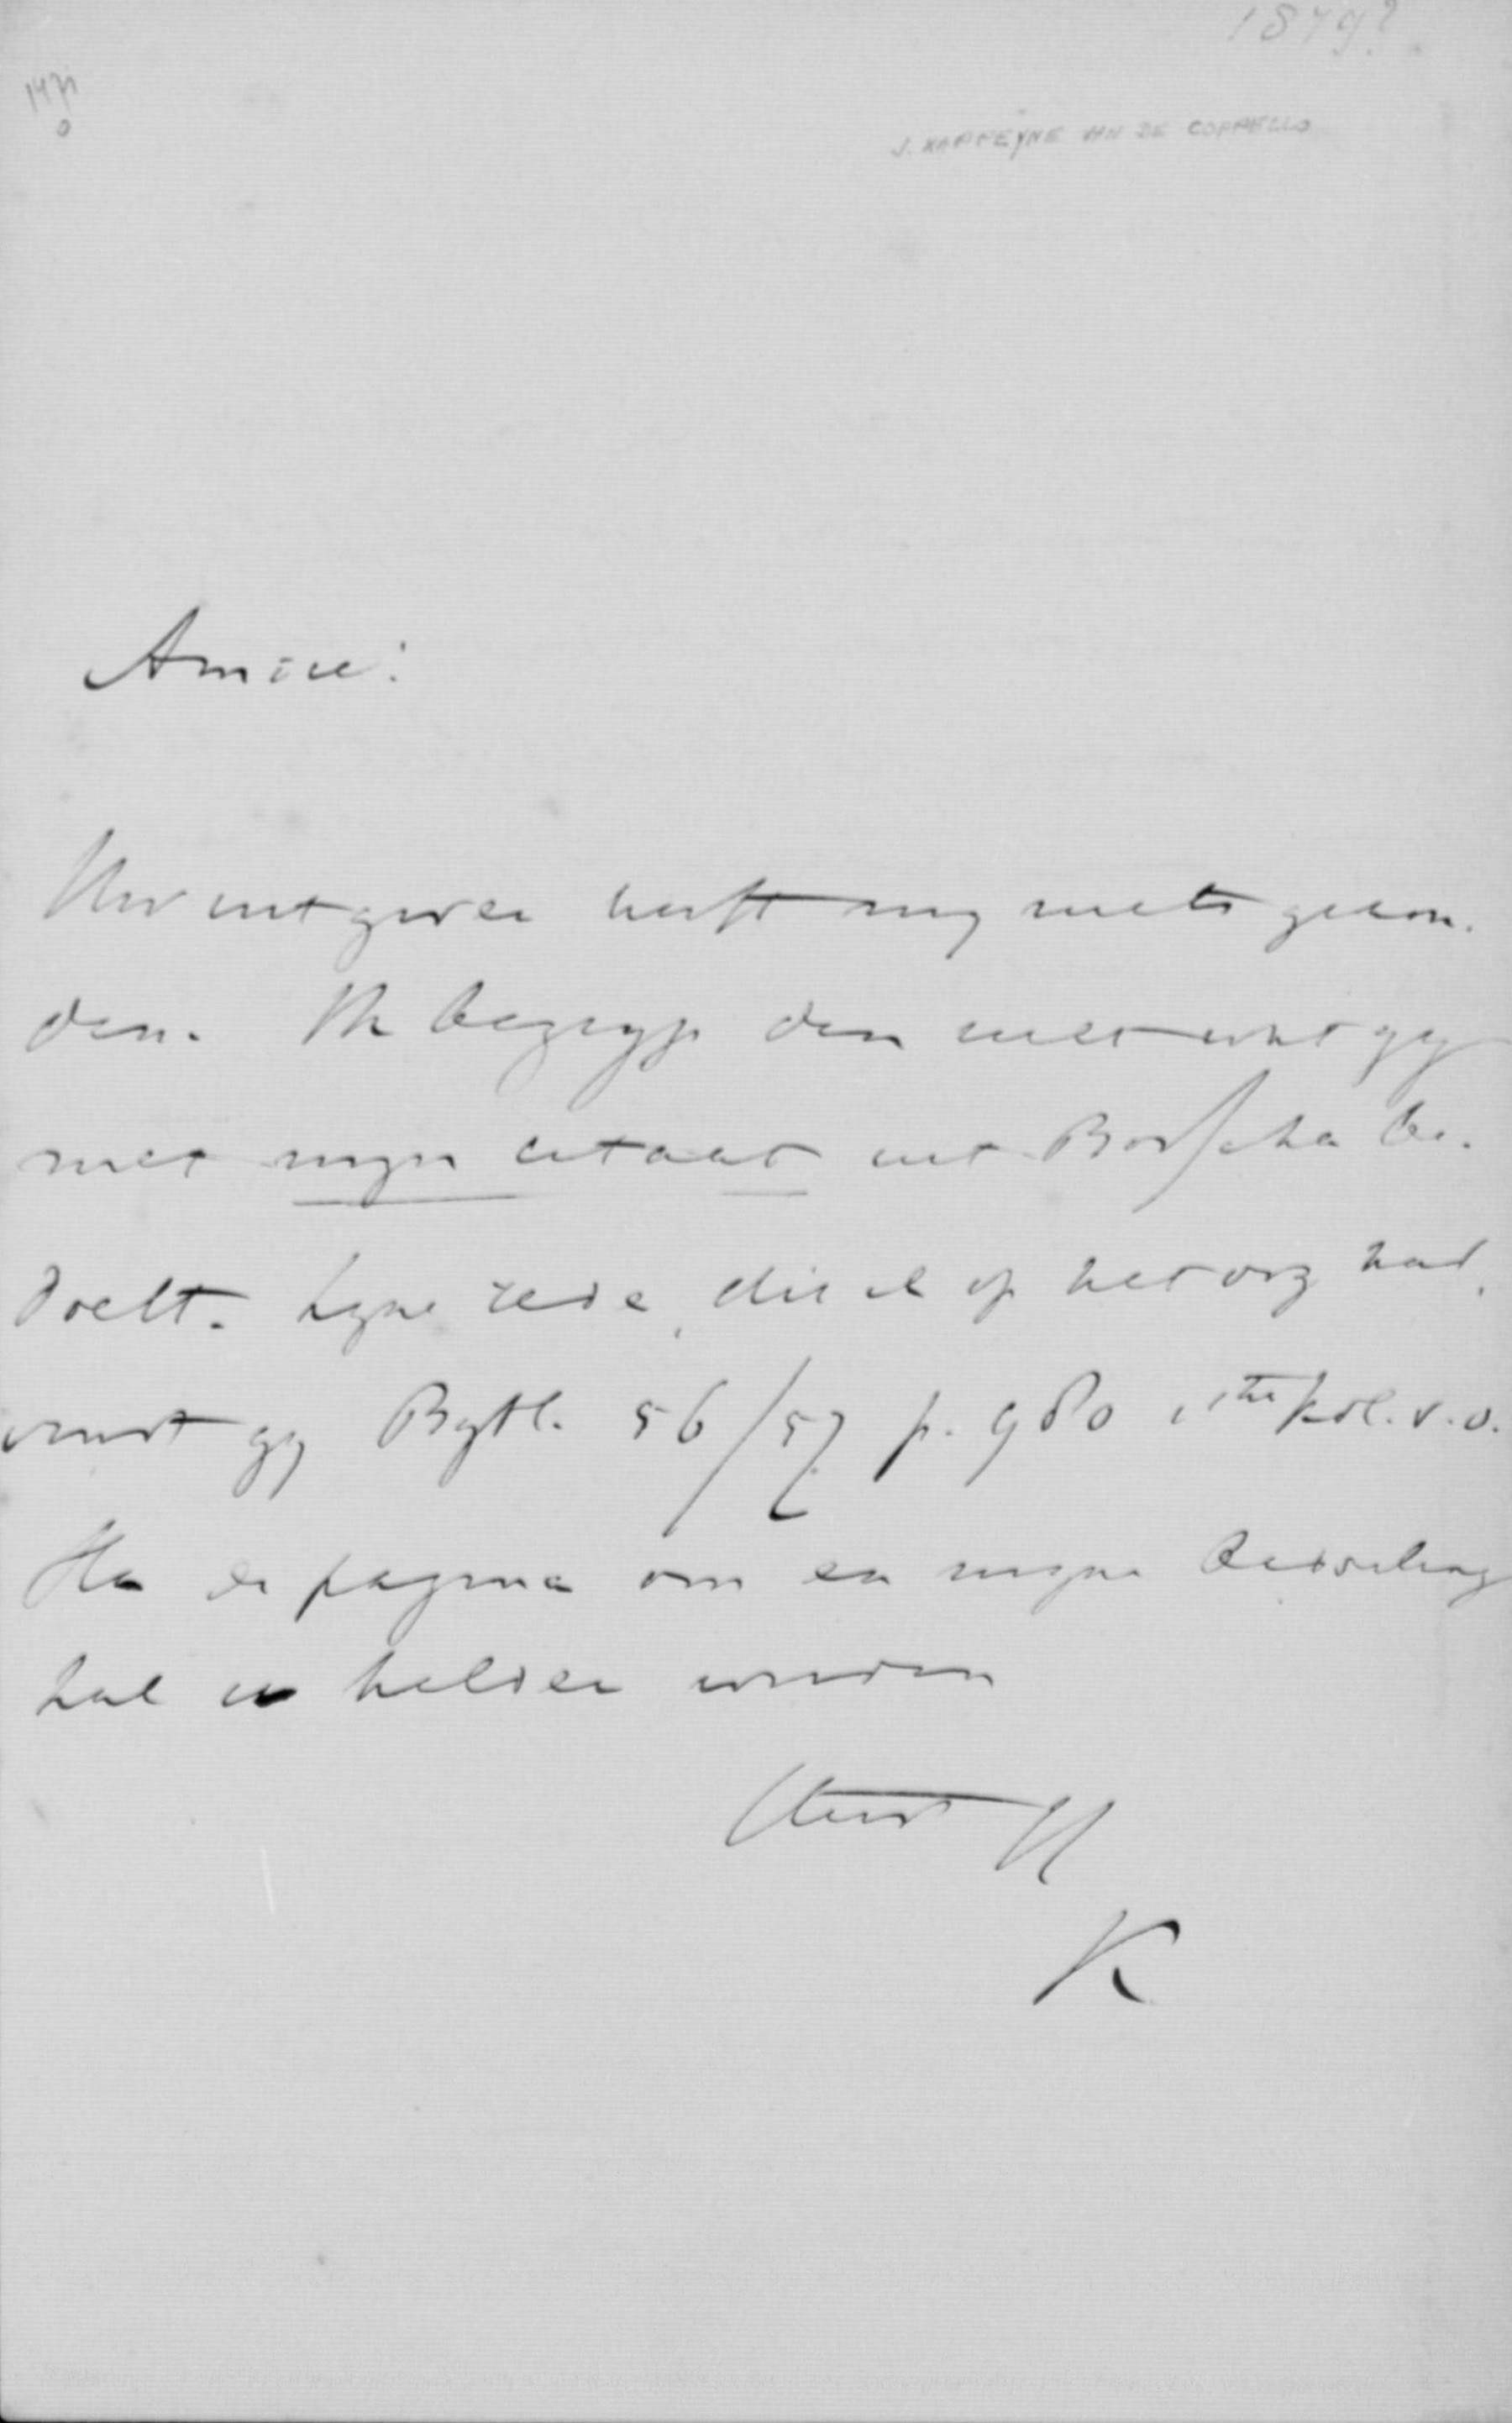 1879?
J. KAPPEYNE VAN DE COPPELLO
Amice:
Uw uitgever heeft mij niets gezon.
den. Ik begrijp dan niet wat gij
met mijn citaat uit Bosscha be.
doelt. Zijne rede, die ik op het oog had,
vindt gij Bijbl. 56/57 p. 980 1ste kol. v. o.
Sla de pagina om en mijne bedoeling
zal u helder worden
tt
K